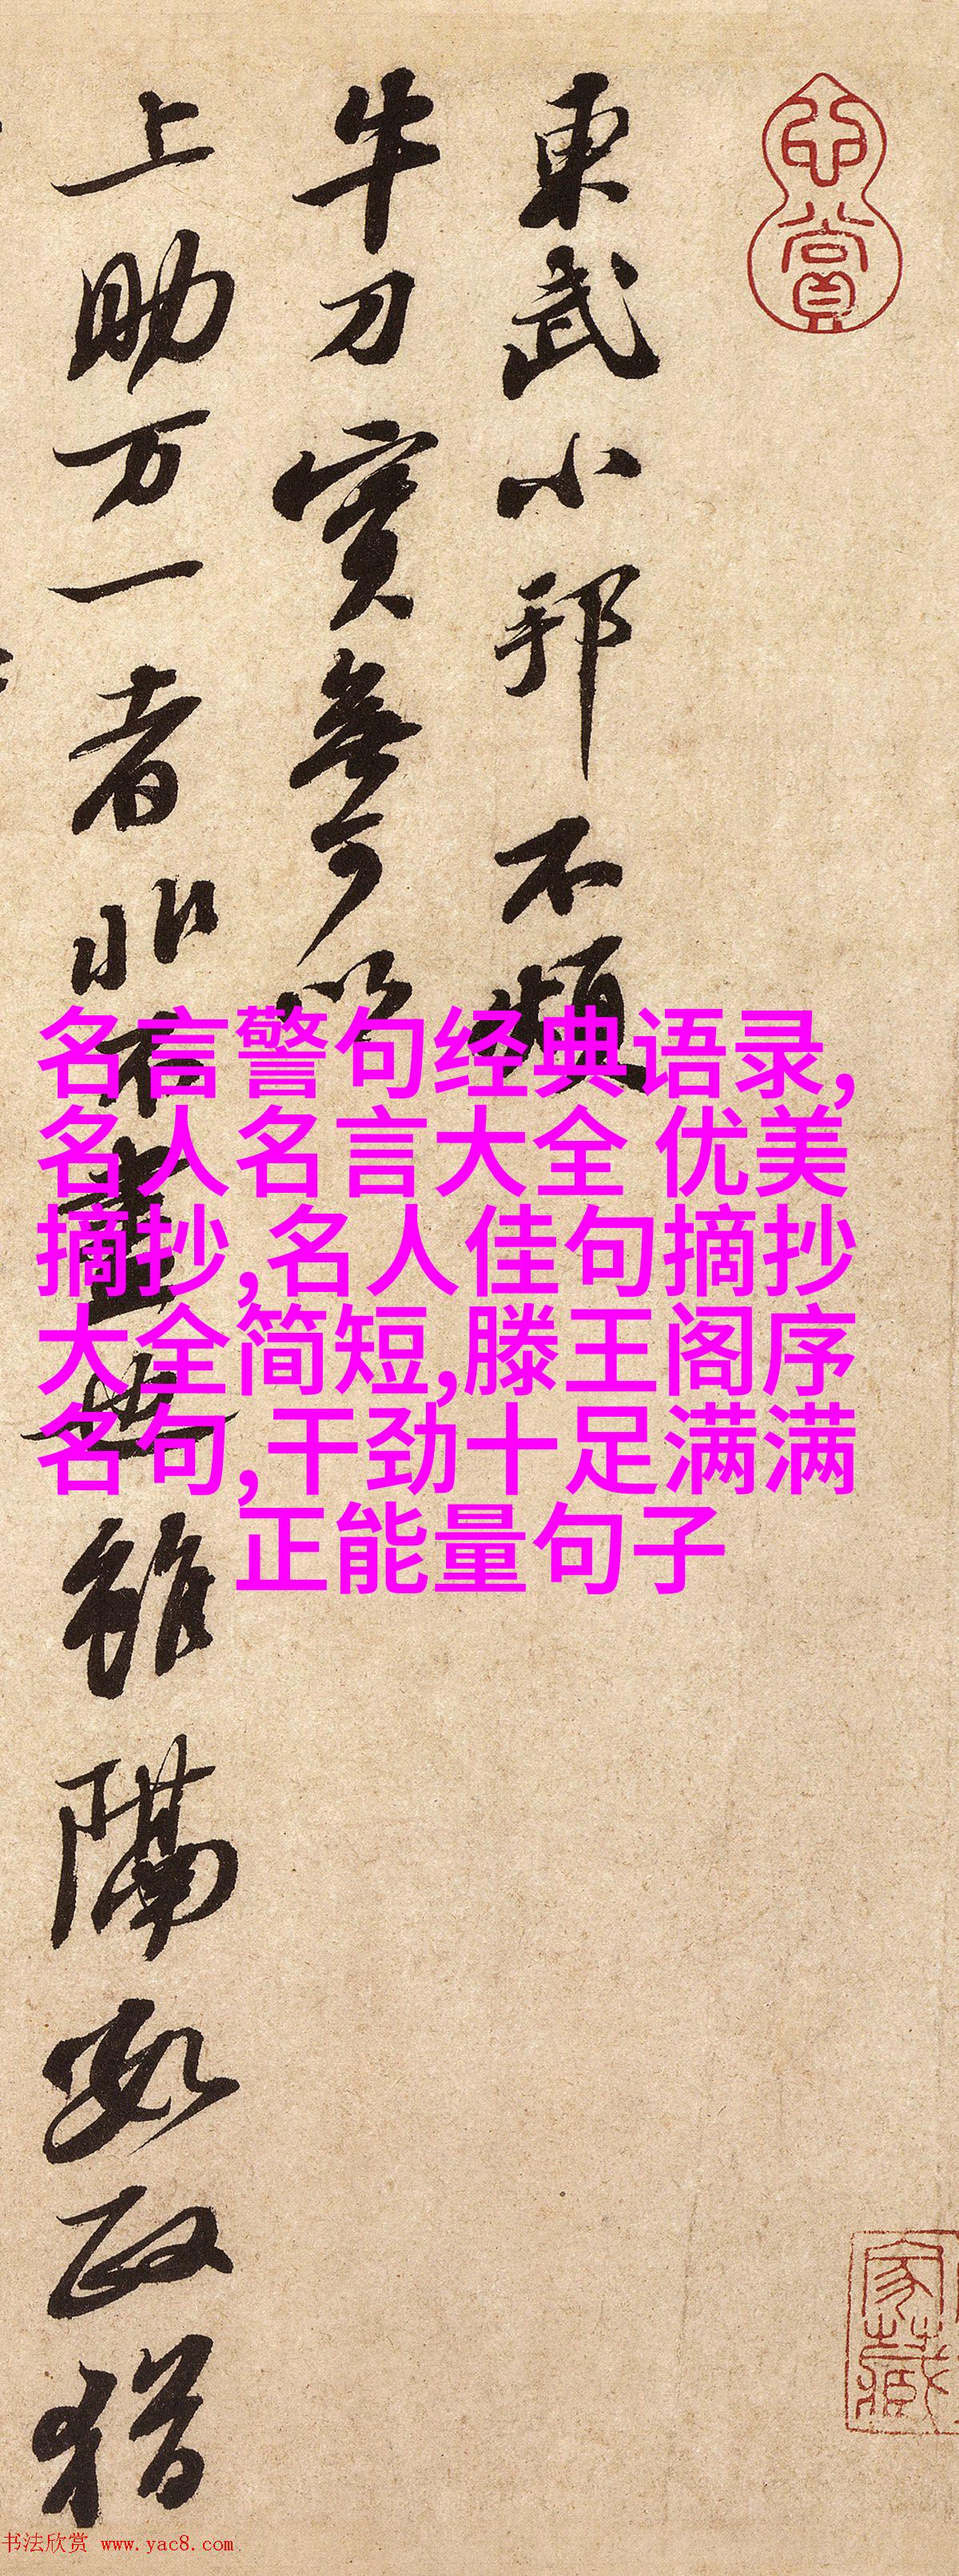 心賞
東武小邦不煩
牛刀實無可以
上助万一者非不盡
雖隔數政猶
名言警句经典语录,
名人名言大全 优美
摘抄,名人佳句摘抄
大全简短,滕王阁序
名句,干劲十足满满
正能量句子
家藏
书法欣赏 www.yac8.com